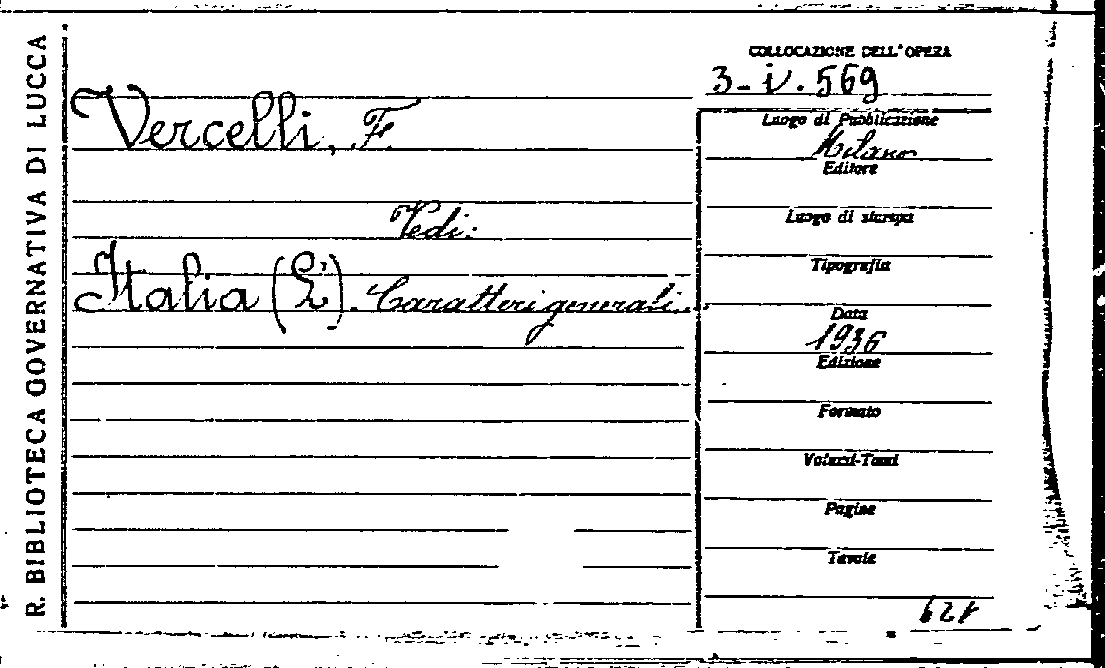 R. BIBLIOTECA GOVERNATIVA DI LUCCA
Vercelli, F.
Vedi:
Italia (L'). Caratteri generali...
COLLOCAZIONE DELL'OPERA
3-iv.569
Luogo di Pubblicazione
Milano
Editore
Luogo di stampa
Tipografia
Data
1936
Edizione
Formato
Volumi-Tomi
Pagine
Tavole